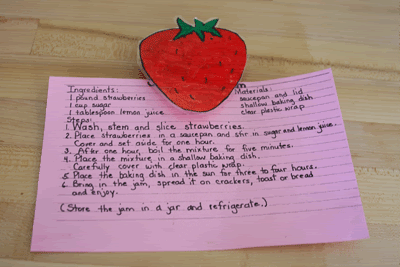 Ingredients:
1 pound strawberries
1 cup sugar
1 tablespoon lemon juice
Materials:
saucepan and lid
shallow baking dish
clear plastic wrap
Steps:
1. Wash, stem and slice strawberries.
2. Place strawberries in a saucepan and stir in sugar and lemon juice.
Cover and set aside for one hour.
3. After one hour, boil the mixture for five minutes.
4. Place the mixture in a shallow baking dish.
Carefully cover with clear plastic wrap.
5. Place the baking dish in the sun for three to four hours.
6. Bring in the jam, spread it on crackers, toast or bread
and enjoy.
(Store the jam in a jar and refrigerate.)